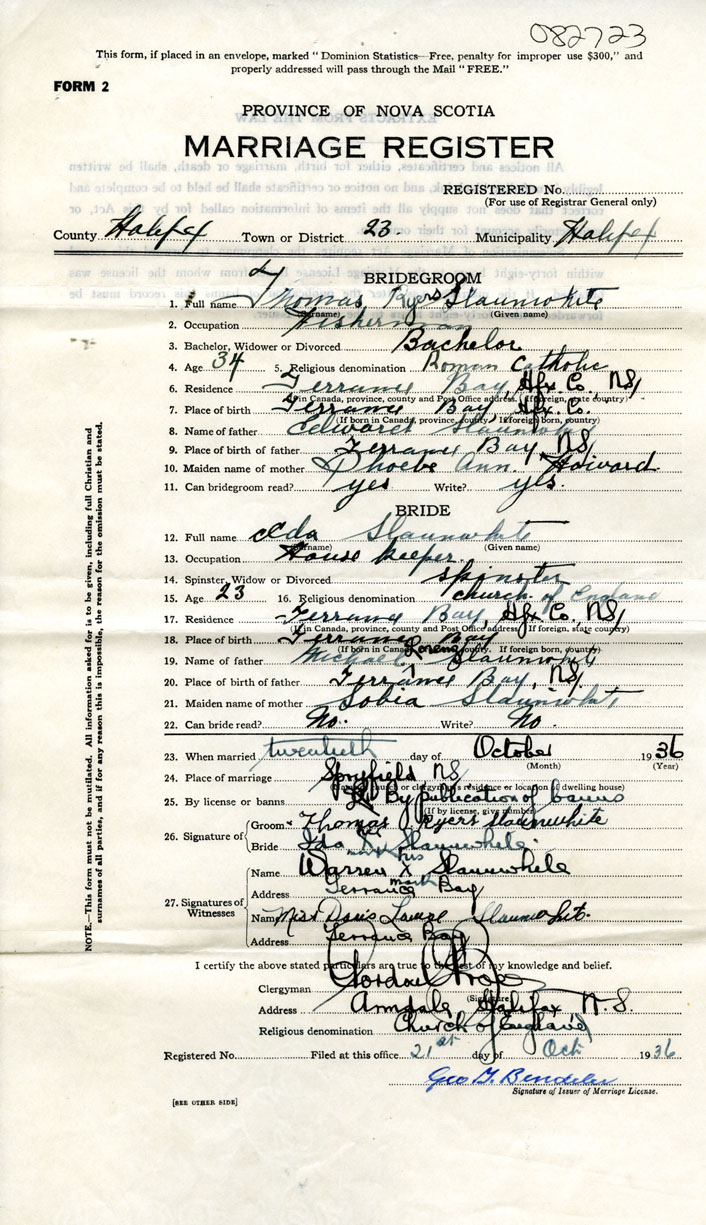 082723
This form, if placed in an envelope, marked "Dominion Statistics—Free, penalty for improper use $300," and
properly addressed will pass through the Mail "FREE."
FORM 2
PROVINCE OF NOVA SCOTIA
MARRIAGE REGISTER
REGISTERED No.
(For use of Registrar General only)
County Halifax Town or District 23. Municipality Halifax
BRIDEGROOM
1. Full name Thomas Ryers Slaunwhite
(Surname) (Given name)
2. Occupation Fisherman
3. Bachelor, Widower or Divorced Bachelor
4. Age 34 5. Religious denomination Roman Catholic
6. Residence Terrance Bay, Hfx Co. NS,
(If in Canada, province, county and Post Office address. If foreign, state country)
7. Place of birth Terrance Bay, Hfx. Co.
(If born in Canada, province, county. If foreign born, country)
8. Name of father Edward Slaunwhite
9. Place of birth of father Terrance Bay NS,
10. Maiden name of mother Phoebe Ann
11. Can bridegroom read? yes Write? yes.
BRIDE
12. Full name Ada Slaunwhite
(Surname) (Given name)
13. Occupation House keeper
14. Spinster, Widow or Divorced spinster
15. Age 23 16. Religious denomination church of England
17. Residence Terrance Bay, Hfx Co., NS,
(If in Canada, province, county and Post Office address. If foreign, state country)
18. Place of birth Terrance Bay
(If born in Canada, province, county. If foreign born, country)
19. Name of father Michael Slaunwhite
20. Place of birth of father Terrance Bay, NS,
21. Maiden name of mother Sobia Slaunwhite
22. Can bride read? No. Write? No.
23. When married twentieth day of October 1936
(Month) (Year)
24. Place of marriage Spryfield NS
(Name of church or clergyman's residence or location of dwelling house)
25. By license or banns By publication of banns
(If by license, give number)
26. Signature of Groom Thomas Ryers Slaunwhite
Bride Ida X Slaunwhite
mark his
27. Signatures of Witnesses Name Warren X Slaunwhite
mark
Address Terrance Bay
Name Miss Doris Slaunwhite.
Address Terrance Bay
I certify the above stated particulars are true to the best of my knowledge and belief.
Clergyman Gordon
(Signature)
Address Armdale Halifax N.S.
Religious denomination Church of England
Registered No. Filed at this office 21st day of Oct 1936
Geo
Signature of Issuer of Marriage License.
[SEE OTHER SIDE]
NOTE.—This form must not be mutilated. All information asked for is to be given, including full Christian and
surnames of all parties, and if for any reason this is impossible, the reason for the omission must be stated.